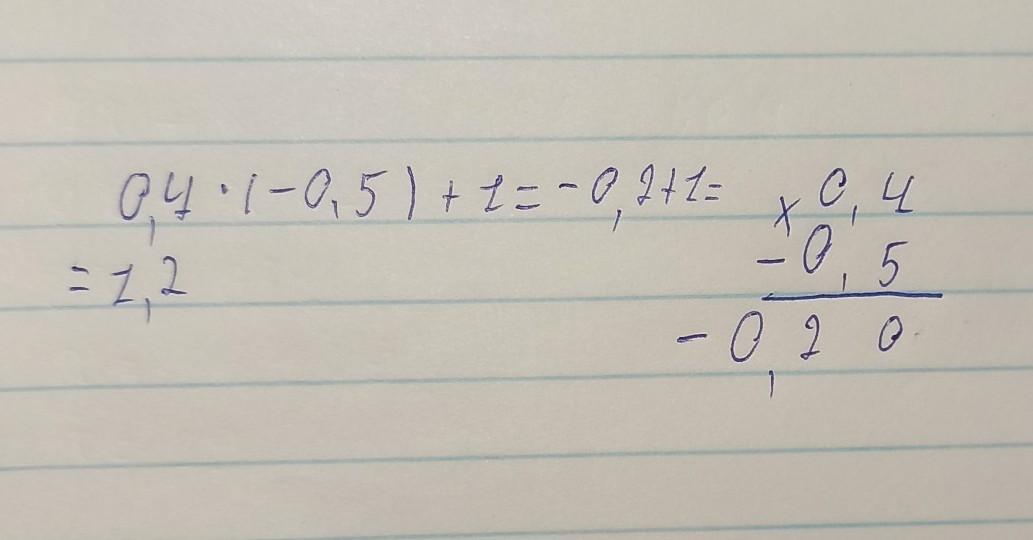 0,4 · (-0,5) + 1 = -0,2+1=
= 1,2
× 0,4
-0,5
-0,20